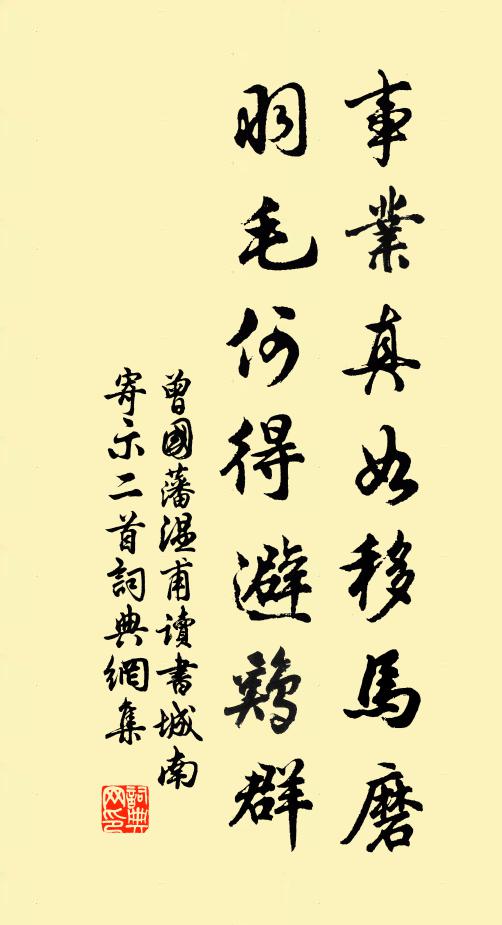 事業真如移馬磨
羽毛何得避鷄群
曾國藩溫甫讀書城南
寄示二首詞典網集
詞典網印